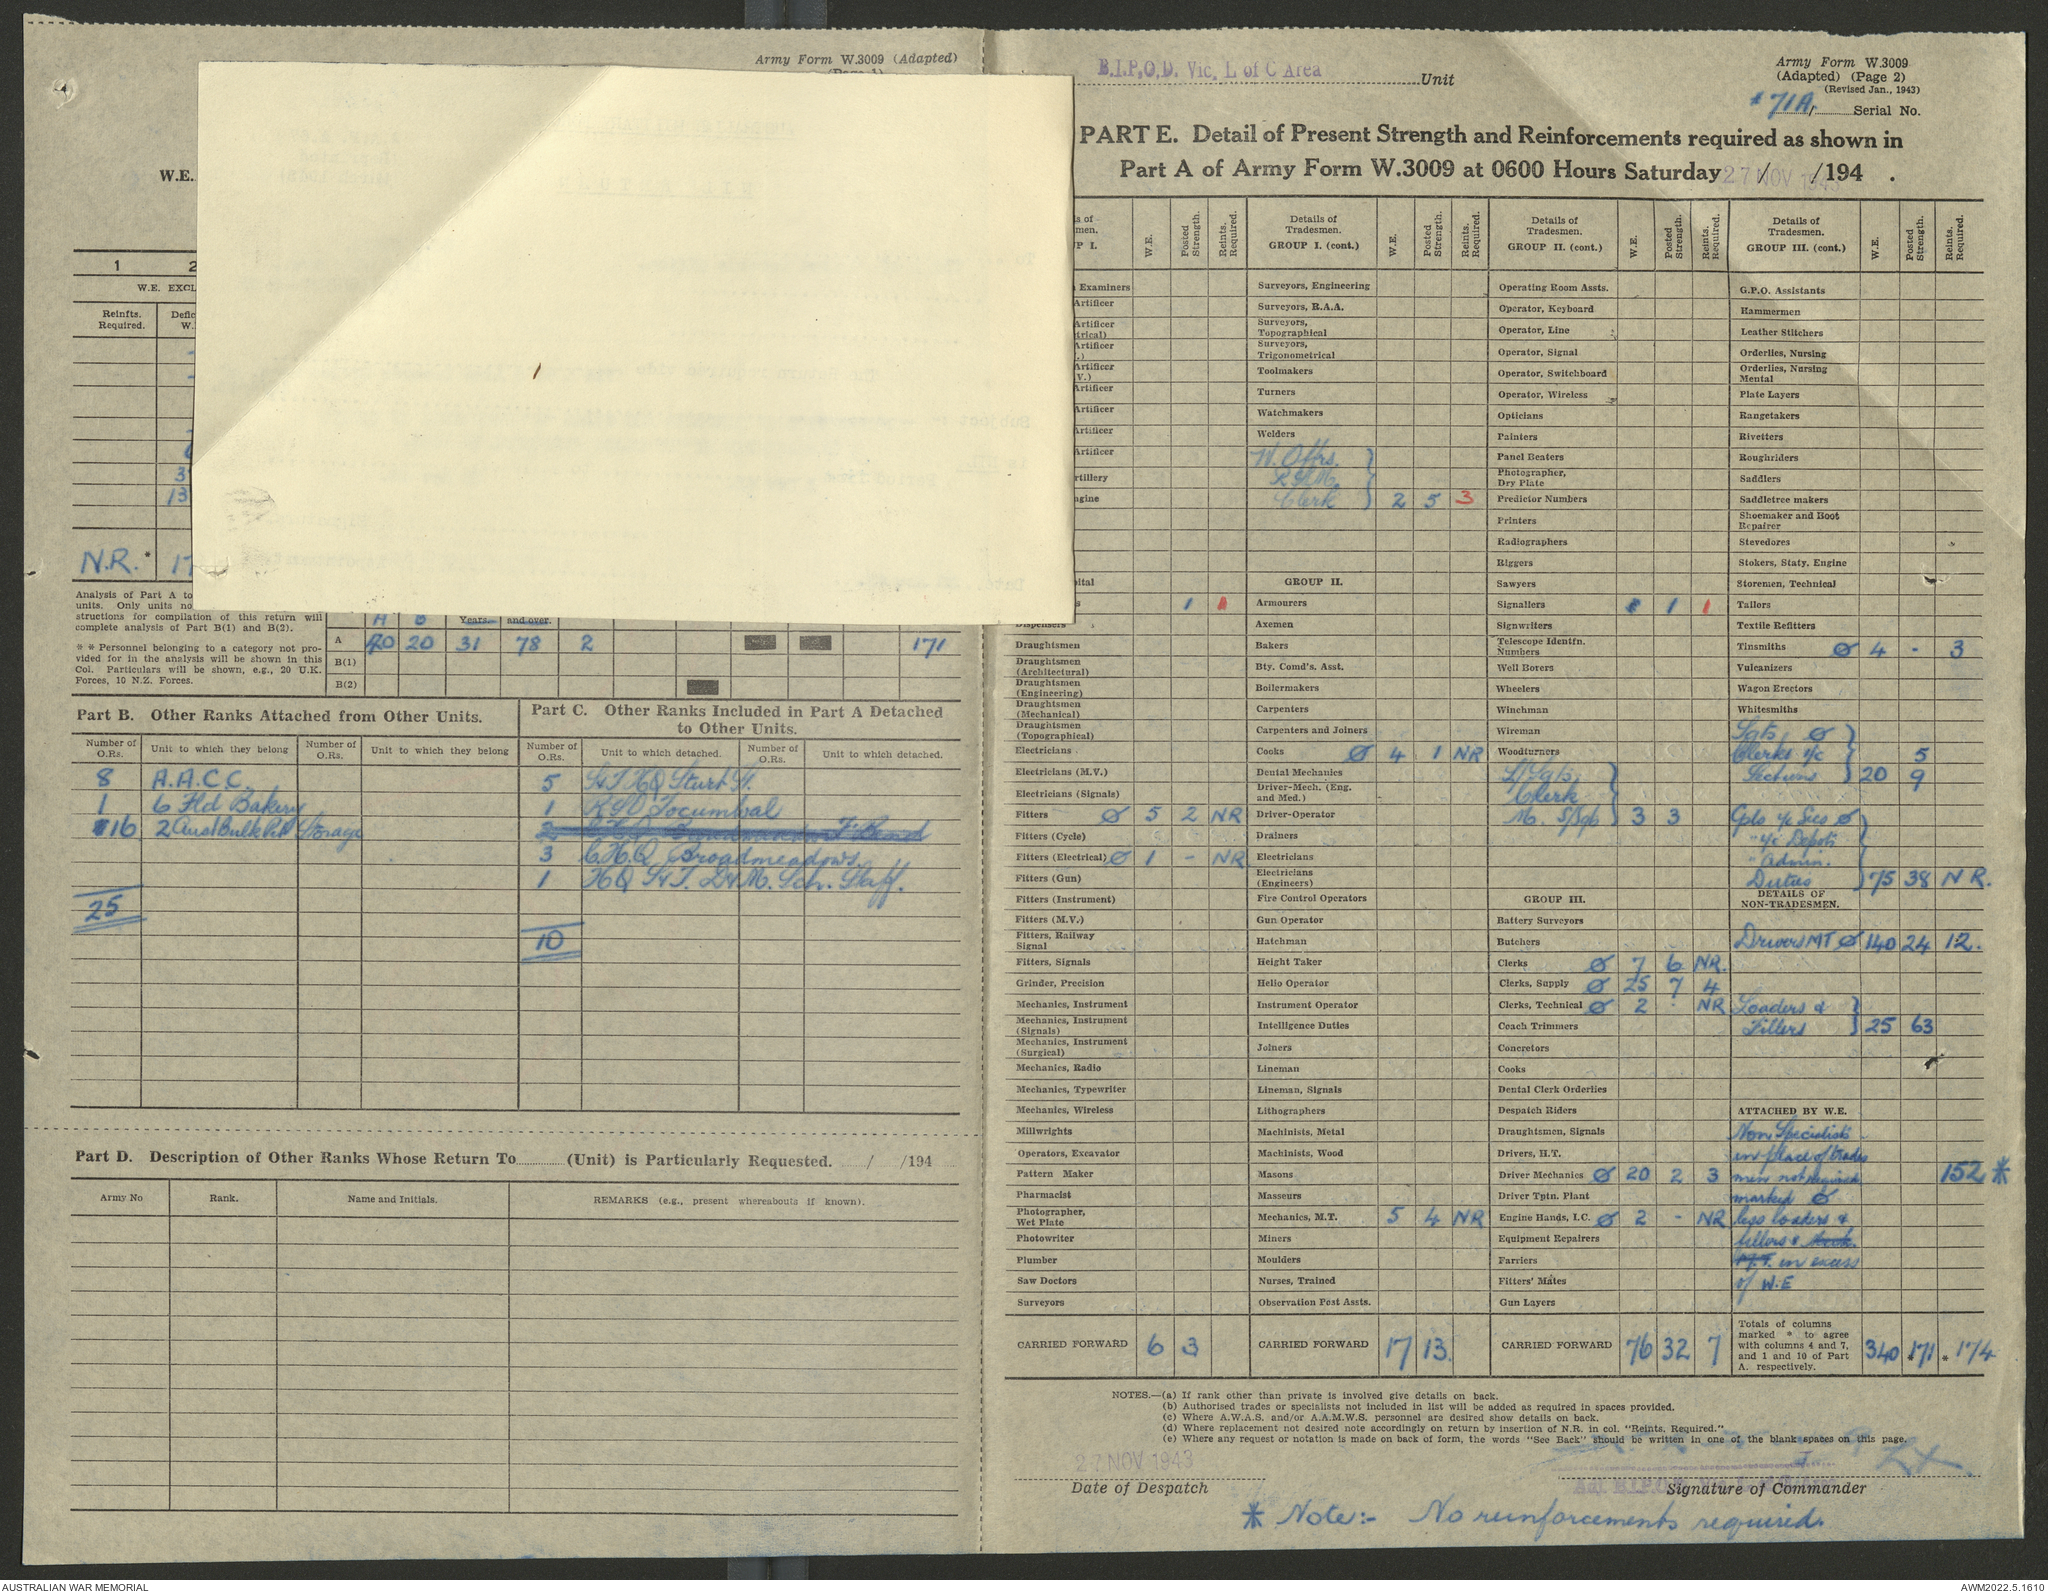 Army Form W.3009 (Adapted)
W.E.
1 2
W.E. EXCL
Reinfts. Required. Defic W.
3
13
N.R. * 17
Analysis of Part A to
units. Only units no
structions for compilation of this return will
complete analysis of Part B(1) and B(2).
* * Personnel belonging to a category not pro-
vided for in the analysis will be shown in this
Col. Particulars will be shown, e.g., 20 U.K.
Forces, 10 N.Z. Forces.
A B Years. and over.
A 20 20 31 78 2 171
B(1)
B(2)
Part B. Other Ranks Attached from Other Units.
Number of O.Rs. Unit to which they belong Number of O.Rs. Unit to which they belong
8 A.A.C.C.
1 6 Fld Bakery
16 2 Aust Bulk Pet Storage
25
Part C. Other Ranks Included in Part A Detached
to Other Units.
Number of O.Rs. Unit to which detached. Number of O.Rs. Unit to which detached.
5 S&T HQ Sturt St.
1 RSO Tocumwal
3 C.H.Q. Broadmeadows.
1 HQ S&T. D&M. Sch. Staff.
10
Part D. Description of Other Ranks Whose Return To (Unit) is Particularly Requested. / /194
Army No Rank. Name and Initials. REMARKS (e.g., present whereabouts if known).
B.I.P.O.D. Vic. L of C Area Unit
Army Form W.3009
(Adapted) (Page 2)
(Revised Jan., 1943)
71A Serial No.
PART E. Detail of Present Strength and Reinforcements required as shown in
Part A of Army Form W.3009 at 0600 Hours Saturday 27 NOV 194 / /194 .
s of men. P I. W.E. Posted Strength. Reints. Required.
Examiners
Artificer
Artificer trical)
Artificer .)
Artificer V.)
Artificer
Artificer
Artificer
rtillery
ngine
pital
s 1 1
Dispensers
Draughtsmen
Draughtsmen (Architectural)
Draughtsmen (Engineering)
Draughtsmen (Mechanical)
Draughtsmen (Topographical)
Electricians
Electricians (M.V.)
Electricians (Signals)
Fitters Ø 5 2 NR
Fitters (Cycle)
Fitters (Electrical) Ø 1 - NR
Fitters (Gun)
Fitters (Instrument)
Fitters (M.V.)
Fitters, Railway Signal
Fitters, Signals
Grinder, Precision
Mechanics, Instrument
Mechanics, Instrument (Signals)
Mechanics, Instrument (Surgical)
Mechanics, Radio
Mechanics, Typewriter
Mechanics, Wireless
Millwrights
Operators, Excavator
Pattern Maker
Pharmacist
Photographer, Wet Plate
Photowriter
Plumber
Saw Doctors
Surveyors
CARRIED FORWARD 6 3
Details of Tradesmen. GROUP I. (cont.) W.E. Posted Strength. Reints. Required.
Surveyors, Engineering
Surveyors, R.A.A.
Surveyors, Topographical
Surveyors, Trigonometrical
Toolmakers
Turners
Watchmakers
Welders
W. Offrs.
R.S.M.
Clerk } 2 5 3
GROUP II.
Armourers
Axemen
Bakers
Bty. Comd's. Asst.
Boilermakers
Carpenters
Carpenters and Joiners
Cooks Ø 4 1 NR
Dental Mechanics
Driver-Mech. (Eng. and Med.)
Driver-Operator
Drainers
Electricians
Electricians (Engineers)
Fire Control Operators
Gun Operator
Hatchman
Height Taker
Helio Operator
Instrument Operator
Intelligence Duties
Joiners
Lineman
Lineman, Signals
Lithographers
Machinists, Metal
Machinists, Wood
Masons
Masseurs
Mechanics, M.T. 5 4 NR
Miners
Moulders
Nurses, Trained
Observation Post Assts.
CARRIED FORWARD 17 13.
Details of Tradesmen. GROUP II. (cont.) W.E. Posted Strength. Reints. Required.
Operating Room Assts.
Operator, Keyboard
Operator, Line
Operator, Signal
Operator, Switchboard
Operator, Wireless
Opticians
Painters
Panel Beaters
Photographer, Dry Plate
Predictor Numbers
Printers
Radiographers
Riggers
Sawyers
Signallers 1 1
Signwriters
Telescope Identfn. Numbers
Well Borers
Wheelers
Winchman
Wireman
Woodturners
L/Sgts,
Clerk
M. S/Sgt } 3 3
GROUP III.
Battery Surveyors
Butchers
Clerks Ø 7 6 NR.
Clerks, Supply Ø 25 7 4
Clerks, Technical Ø 2 - NR
Coach Trimmers
Concretors
Cooks
Dental Clerk Orderlies
Despatch Riders
Draughtsmen, Signals
Drivers, H.T.
Driver Mechanics Ø 20 2 3
Driver Tptn. Plant
Engine Hands, I.C. Ø 2 - NR
Equipment Repairers
Farriers
Fitters' Mates
Gun Layers
CARRIED FORWARD 76 32 7
Details of Tradesmen. GROUP III. (cont.) W.E. Posted Strength. Reints. Required.
G.P.O. Assistants
Hammermen
Leather Stitchers
Orderlies, Nursing
Orderlies, Nursing Mental
Plate Layers
Rangetakers
Rivetters
Roughriders
Saddlers
Saddletree makers
Shoemaker and Boot Repairer
Stevedores
Stokers, Staty, Engine
Storemen, Technical
Tailors
Textile Refitters
Tinsmiths Ø 4 - 3
Vulcanizers
Wagon Erectors
Whitesmiths
Sgts, Ø
Clerks i/c 5
Sections } 20 9
Cpls i/c Secs Ø
" i/c Depots
" Admin.
Duties } 75 38 N R.
DETAILS OF NON-TRADESMEN.
Drivers MT Ø 140 24 12.
Loaders &
Fillers } 25 63
ATTACHED BY W.E.
Non Specialists
in place of trades
men not required 152 *
marked Ø
less loaders &
fillers
M.T. in excess
of W.E
Totals of columns marked * to agree with columns 4 and 7, and 1 and 10 of Part A. respectively. 340 * 171 * 174
NOTES.—(a) If rank other than private is involved give details on back.
(b) Authorised trades or specialists not included in list will be added as required in spaces provided.
(c) Where A.W.A.S. and/or A.A.M.W.S. personnel are desired show details on back.
(d) Where replacement not desired note accordingly on return by insertion of N.R. in col. "Reints. Required."
(e) Where any request or notation is made on back of form, the words "See Back" should be written in one of the blank spaces on this page.
27 NOV 1943
Date of Despatch
Signature of Commander
* Note:- No reinforcements required.
AUSTRALIAN WAR MEMORIAL
AWM2022.5.1610